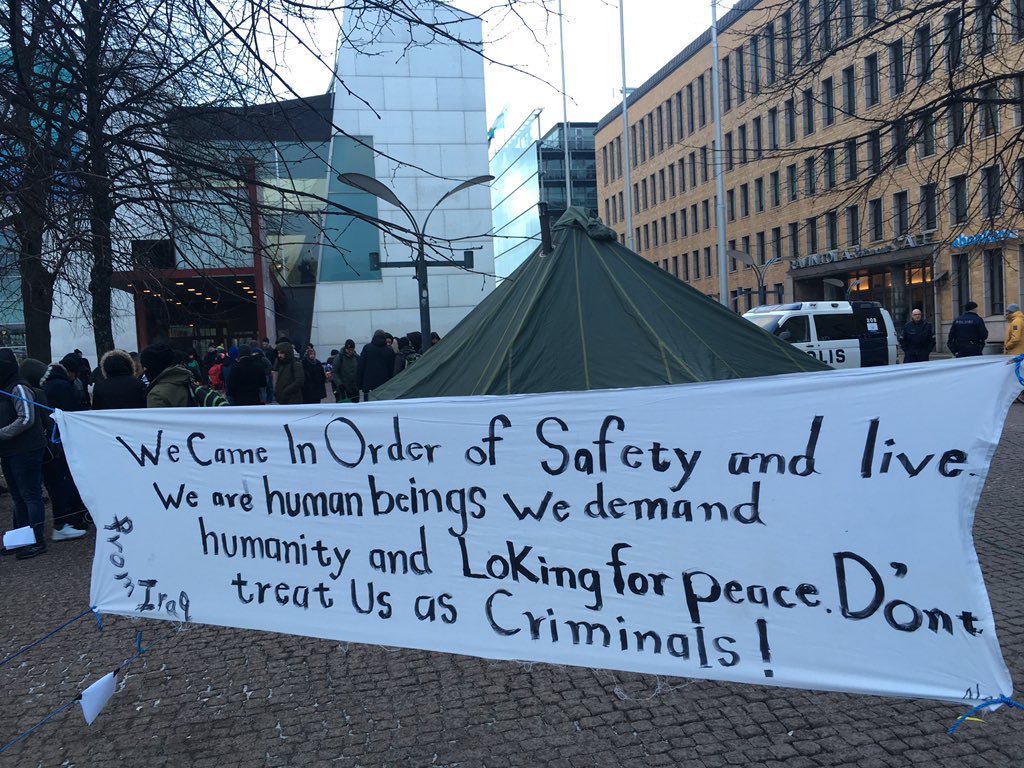 We Came In Order of Safety and live.
We are human beings We demand
humanity and LoKing for peace. D'ont
treat Us as Criminals!
from
Iraq
POSTITALO
Apteekki
208
POLIISI
LIS